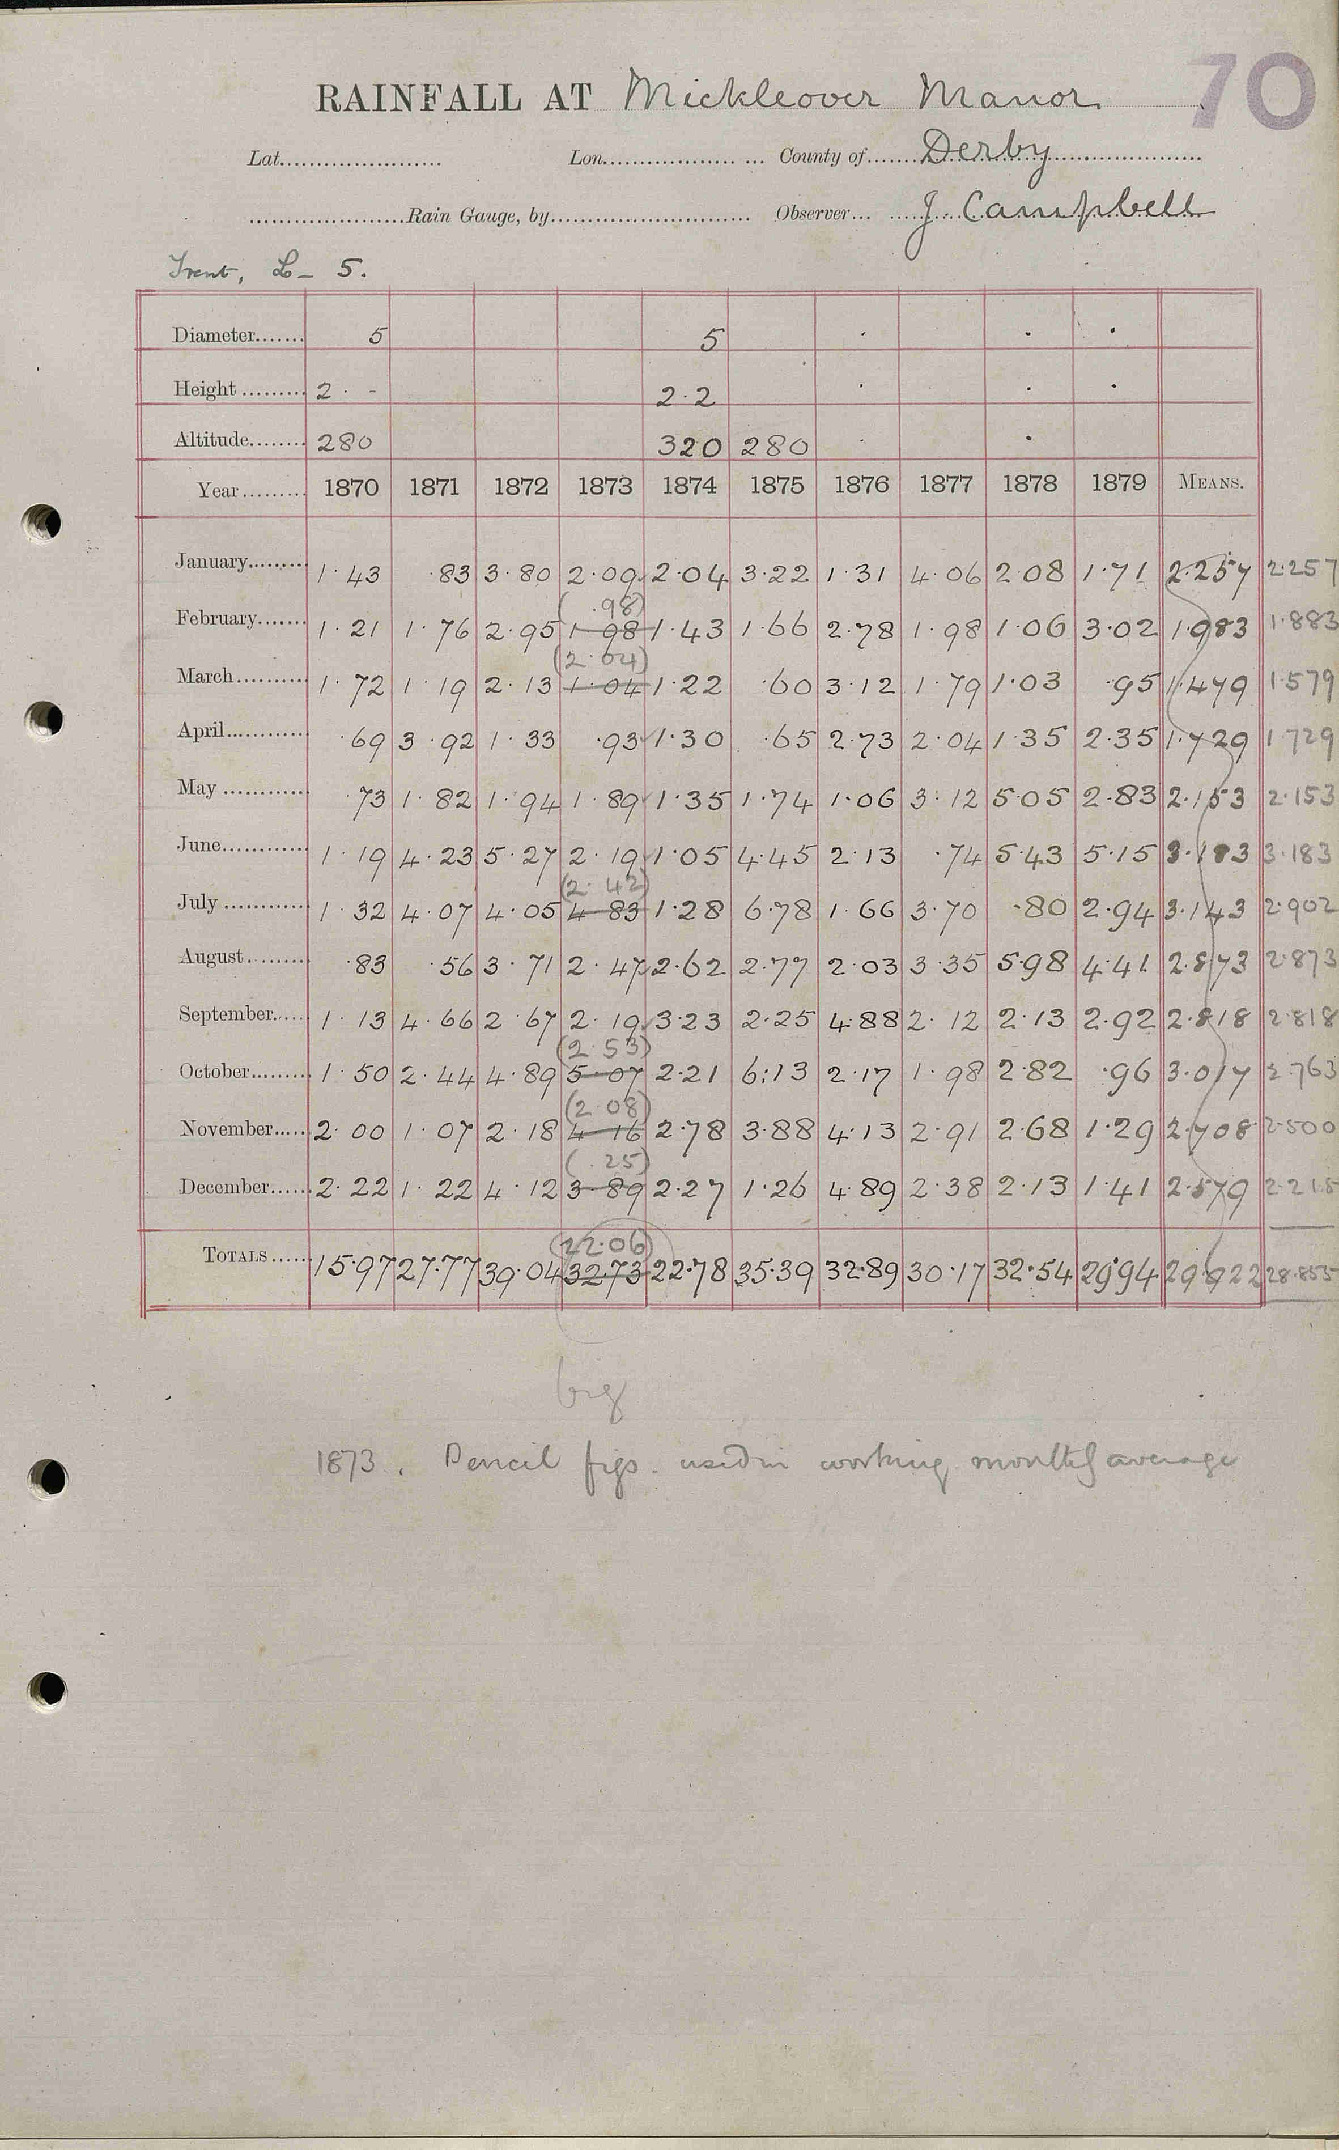 70
RAINFALL AT Mickleover Manor
Lat. Lon. County of Derby
Rain Gauge, by Observer J Campbell
Trent, L- 5.
Diameter 5 5 . . .
Height 2 . - 2.2 . . .
Altitude 280 320 280 . .
Year 1870 1871 1872 1873 1874 1875 1876 1877 1878 1879 MEANS.
January 1.43 .83 3.80 2.09 2.04 3.22 1.31 4.06 2.08 1.71 2.257 2.257
(.98)
February 1.21 1.76 2.95 1.98 1.43 1.66 2.78 1.98 1.06 3.02 1.983 1.883
(2.04)
March 1.72 1.19 2.13 1.04 1.22 .60 3.12 1.79 1.03 .95 1.479 1.579
April .69 3.92 1.33 .93 1.30 .65 2.73 2.04 1.35 2.35 1.729 1.729
May .73 1.82 1.94 1.89 1.35 1.74 1.06 3.12 5.05 2.83 2.153 2.153
June 1.19 4.23 5.27 2.19 1.05 4.45 2.13 .74 5.43 5.15 3.183 3.183
(2.42)
July 1.32 4.07 4.05 4.83 1.28 6.78 1.66 3.70 .80 2.94 3.143 2.902
August .83 .56 3.71 2.47 2.62 2.77 2.03 3.35 5.98 4.41 2.873 2.873
September 1.13 4.66 2.67 2.19 3.23 2.25 4.88 2.12 2.13 2.92 2.818 2.818
(2.53)
October 1.50 2.44 4.89 5.07 2.21 6.13 2.17 1.98 2.82 .96 3.017 2.763
(2.08)
November 2.00 1.07 2.18 4.16 2.78 3.88 4.13 2.91 2.68 1.29 2.708 2.500
(.25)
December 2.22 1.22 4.12 3.89 2.27 1.26 4.89 2.38 2.13 1.41 2.579 2.215
(22.06)
TOTALS 15.97 27.77 39.04 32.73 22.78 35.39 32.89 30.17 32.54 29.94 29.922 28.855
1873. Pencil figs. used in working monthly average